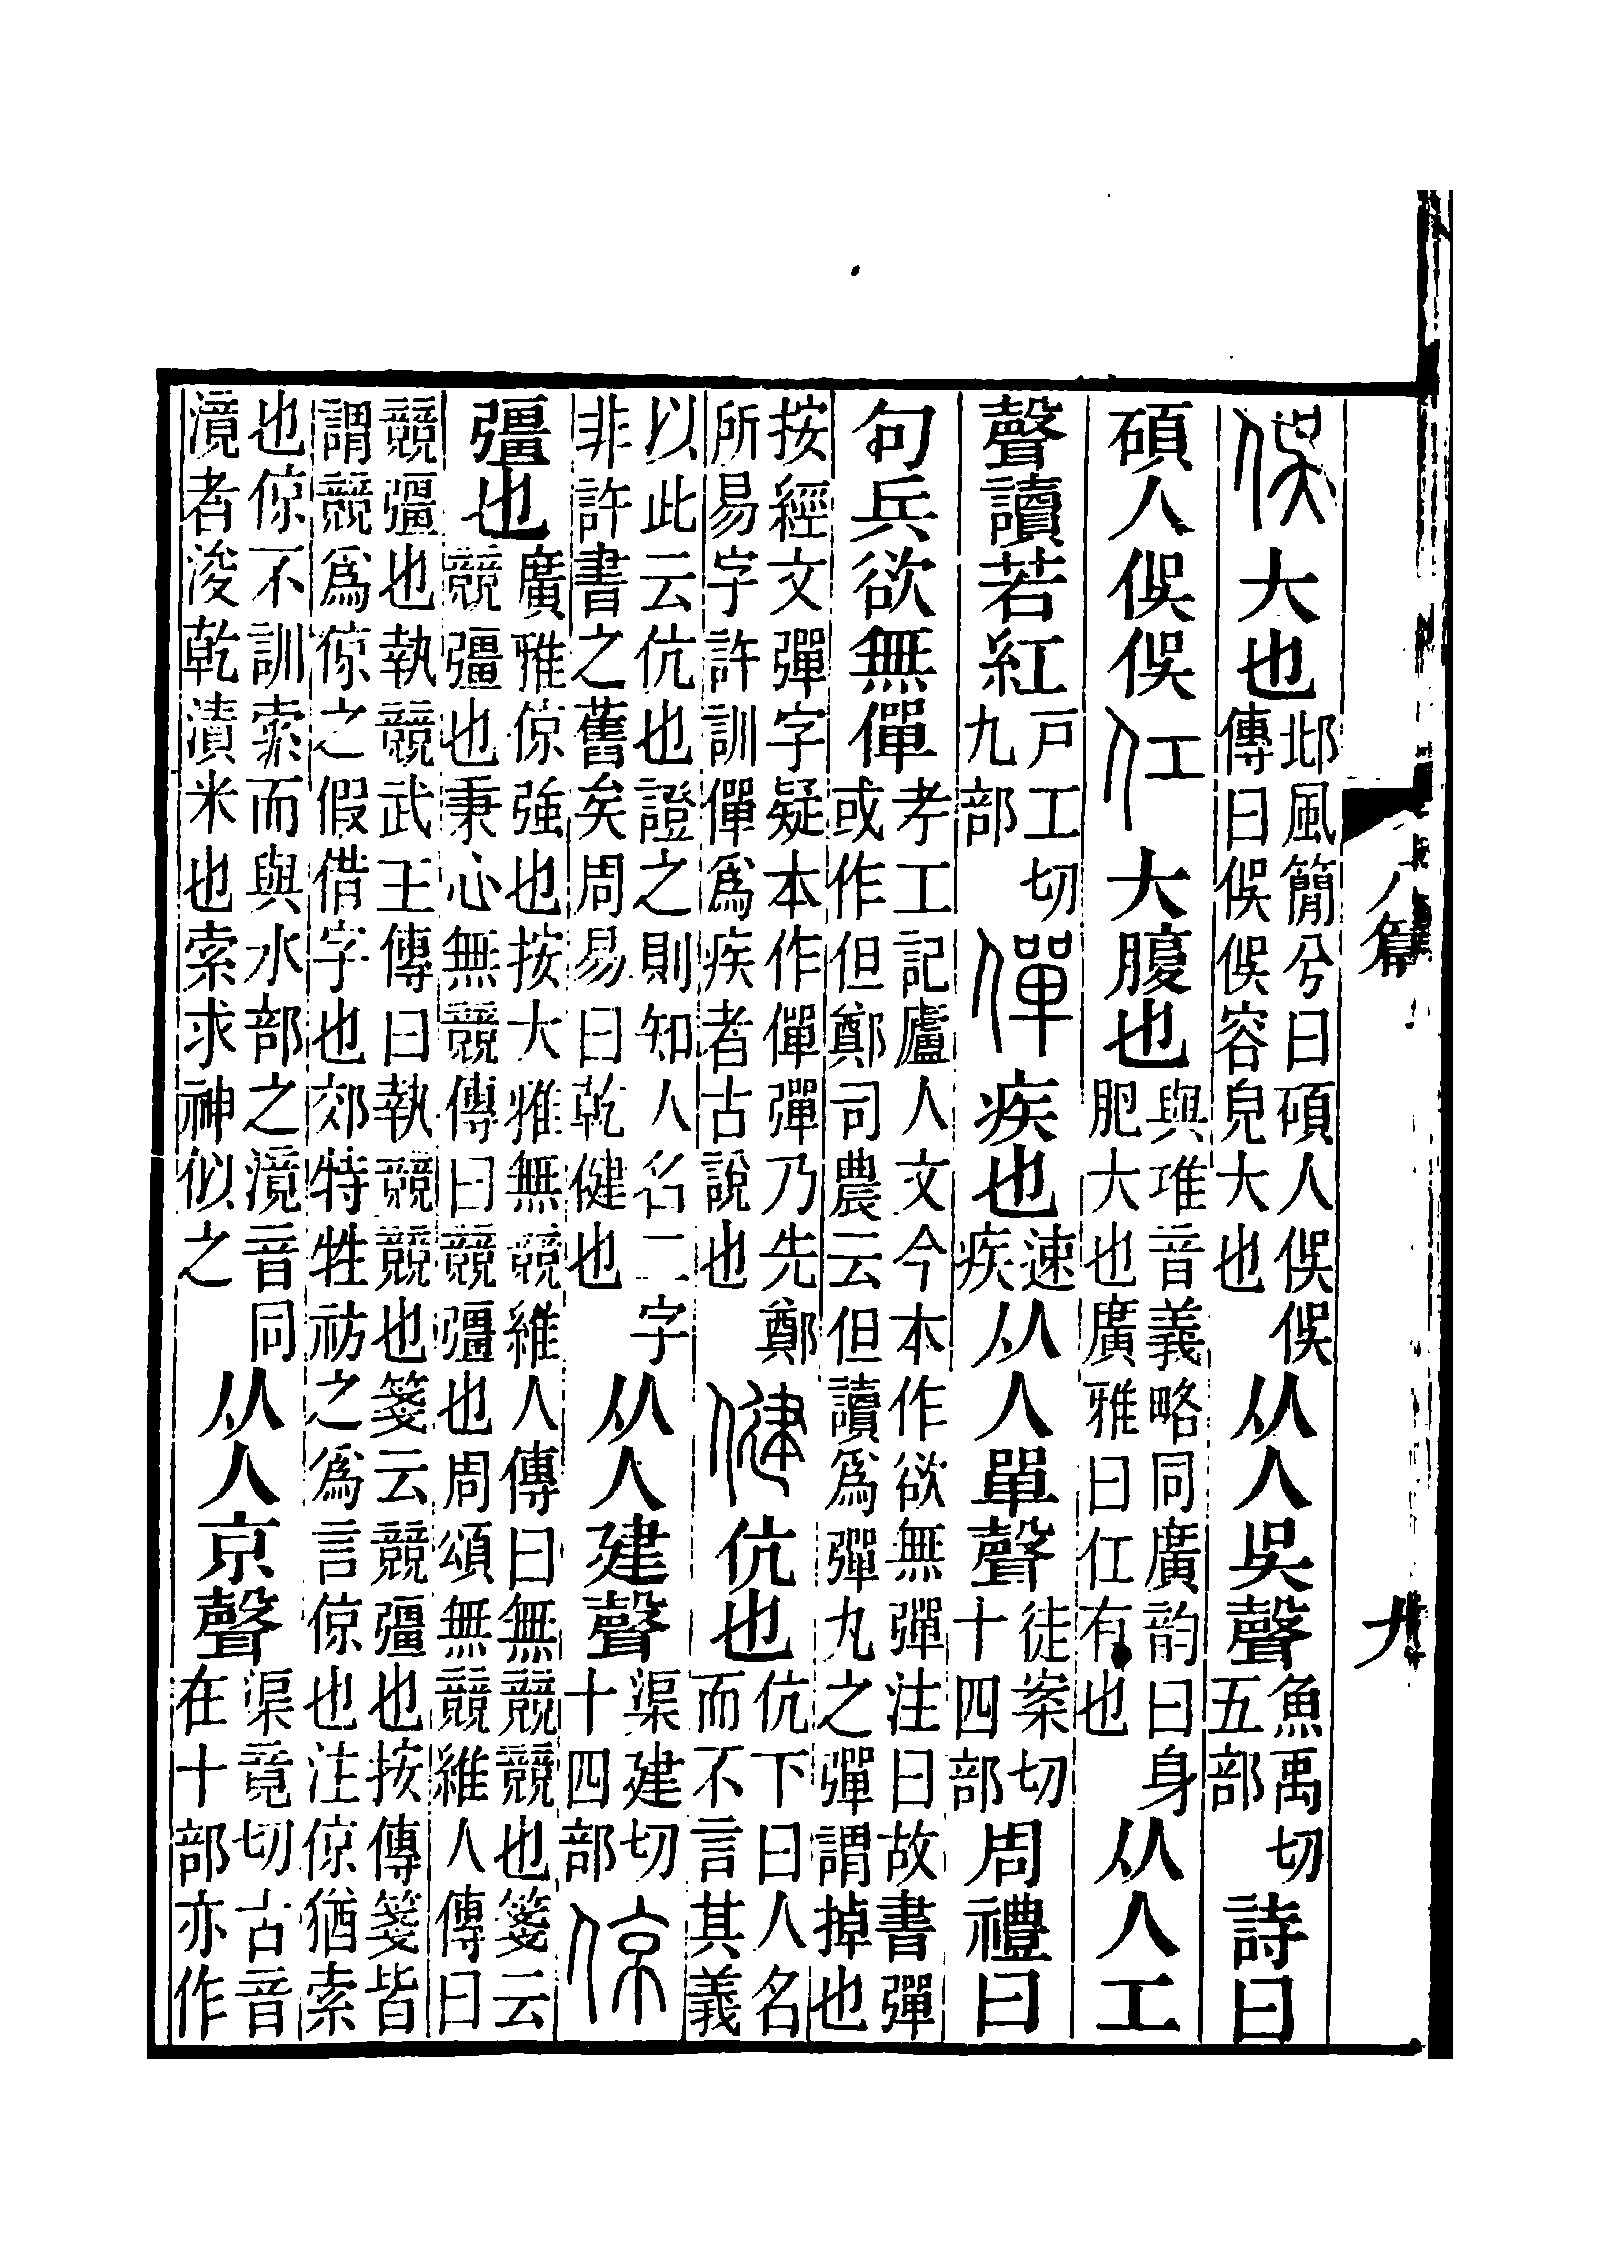 八篇 九
俁大也邶風簡兮曰碩人俁俁傳曰俁俁容皃大也从人吳聲魚禹切五部詩曰
碩人俁俁仜大腹也與琟音義略同廣韵曰身肥大也廣雅曰仜有也从人工
聲讀若紅戸工切九部僤疾也速疾从人單聲徒案切十四部周禮曰
句兵欲無僤考工記廬人文今本作欲無彈注曰故書彈或作但鄭司農云但讀爲彈丸之彈謂掉也
按經文彈字疑本作僤彈乃先鄭所易字許訓僤爲疾者古說也健伉也伉下曰人名而不言其義
以此云伉也證之則知人名二字非許書之舊矣周易曰乾健也从人建聲渠建切十四部倞
彊也廣雅倞強也按大雅無競維人傳曰無競競也箋云競彊也秉心無競傳曰競彊也周頌無競維人傳曰
競彊也執競武王傳曰執競競也箋云競彊也按傳箋皆謂競爲倞之假借字也郊特牲祊之爲言倞也注倞猶索
也倞不訓索而與水部之滰音同滰者浚乾漬米也索求神似之从人京聲渠竟切古音在十部亦作